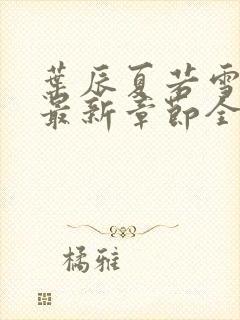 葉辰夏若雪
最新章節全
橘雅